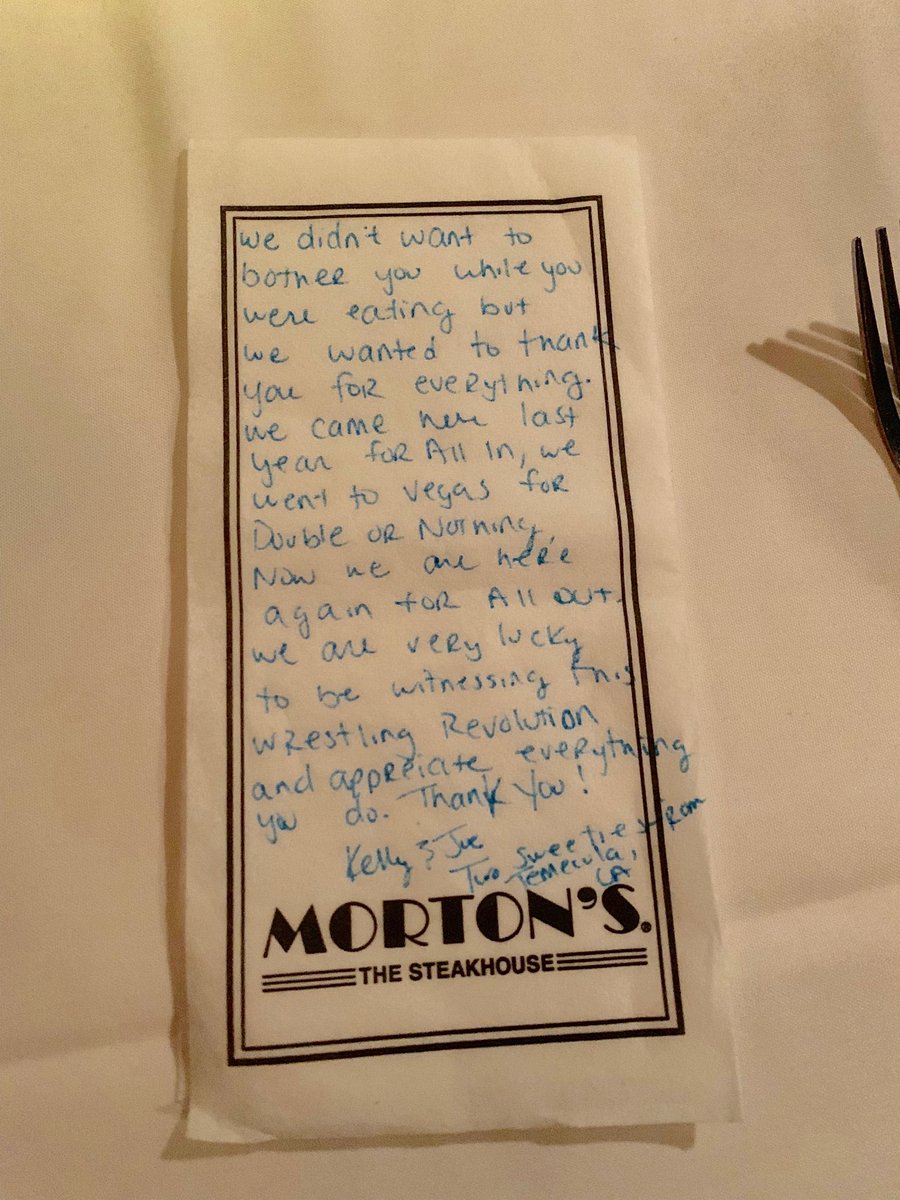 we didn't want to
bother you while you
were eating but
we wanted to thank
you for everything.
we came here last
year for All In, we
went to Vegas for
Double or Nothing,
Now we are here
again for All Out.
we are very lucky
to be witnessing this
wrestling Revolution
and appreciate everything
you do. Thank You!
Kelly & Joe
Two Sweetie from
Temecula,
CA
MORTON'S.®
THE STEAKHOUSE